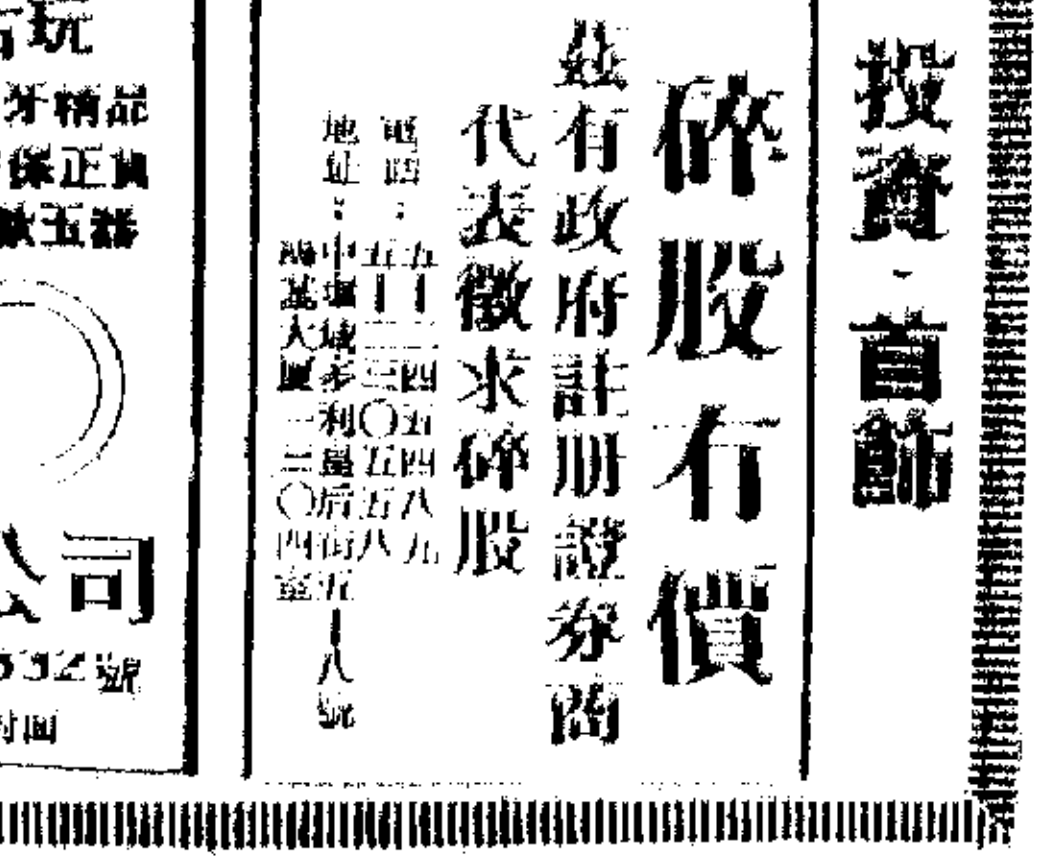 投資·首飾
碎股有價
茲有政府註册證券商
代表徵求碎股
電話：五|二四五四八九
五|二三〇五五八
地址：中環域多利皇后街五|八號
一三〇四室
玩
牙精品
保正貨
玉器
公司
532號